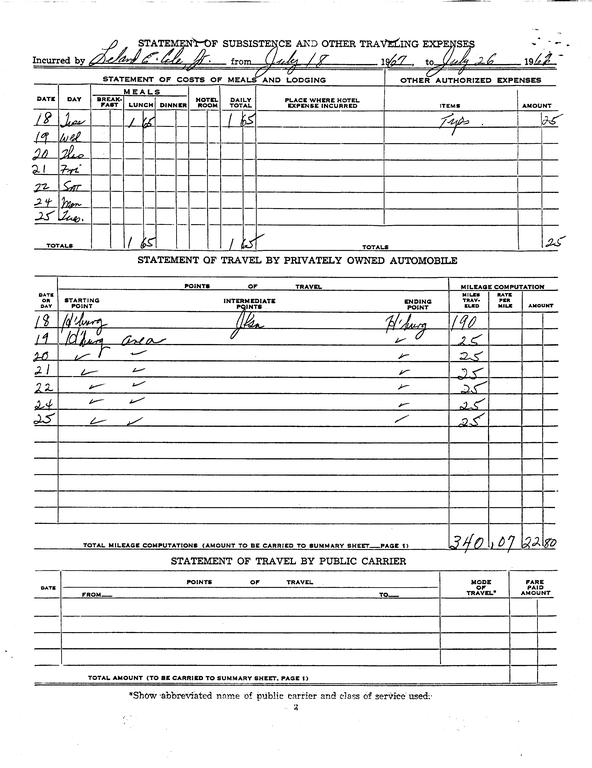 STATEMENT OF SUBSISTENCE AND OTHER TRAVELING EXPENSES
Incurred by Leland E. Cole Jr. from July 18 1967, to July 26 196
STATEMENT OF COSTS OF MEALS AND LODGING OTHER AUTHORIZED EXPENSES
MEALS
DATE DAY BREAK-FAST LUNCH DINNER HOTEL ROOM DAILY TOTAL PLACE WHERE HOTEL EXPENSE INCURRED ITEMS AMOUNT
18 Tues 1 65 1 65 Tips. 25
19 Wed
20 Thus
21 Fri
22 Sat
24 Mon
25 Tues.
TOTALS 1 65 1 65 TOTALS 25
STATEMENT OF TRAVEL BY PRIVATELY OWNED AUTOMOBILE
POINTS OF TRAVEL MILEAGE COMPUTATION
DATE OR DAY STARTING POINT INTERMEDIATE POINTS ENDING POINT MILES TRAV-ELED RATE PER MILE AMOUNT
18 H'burg Jksn H'burg 190
19 H'burg area ✓ 25
20 ✓ ✓ ✓ 25
21 ✓ ✓ ✓ 25
22 ✓ ✓ ✓ 25
24 ✓ ✓ ✓ 25
25 ✓ ✓ ✓ 25
TOTAL MILEAGE COMPUTATIONS (AMOUNT TO BE CARRIED TO SUMMARY SHEET—PAGE 1) 340 .07 22 80
STATEMENT OF TRAVEL BY PUBLIC CARRIER
DATE POINTS OF TRAVEL MODE OF TRAVEL* FARE PAID AMOUNT
FROM— TO—
TOTAL AMOUNT (TO BE CARRIED TO SUMMARY SHEET, PAGE 1)
*Show abbreviated name of public carrier and class of service used.
2